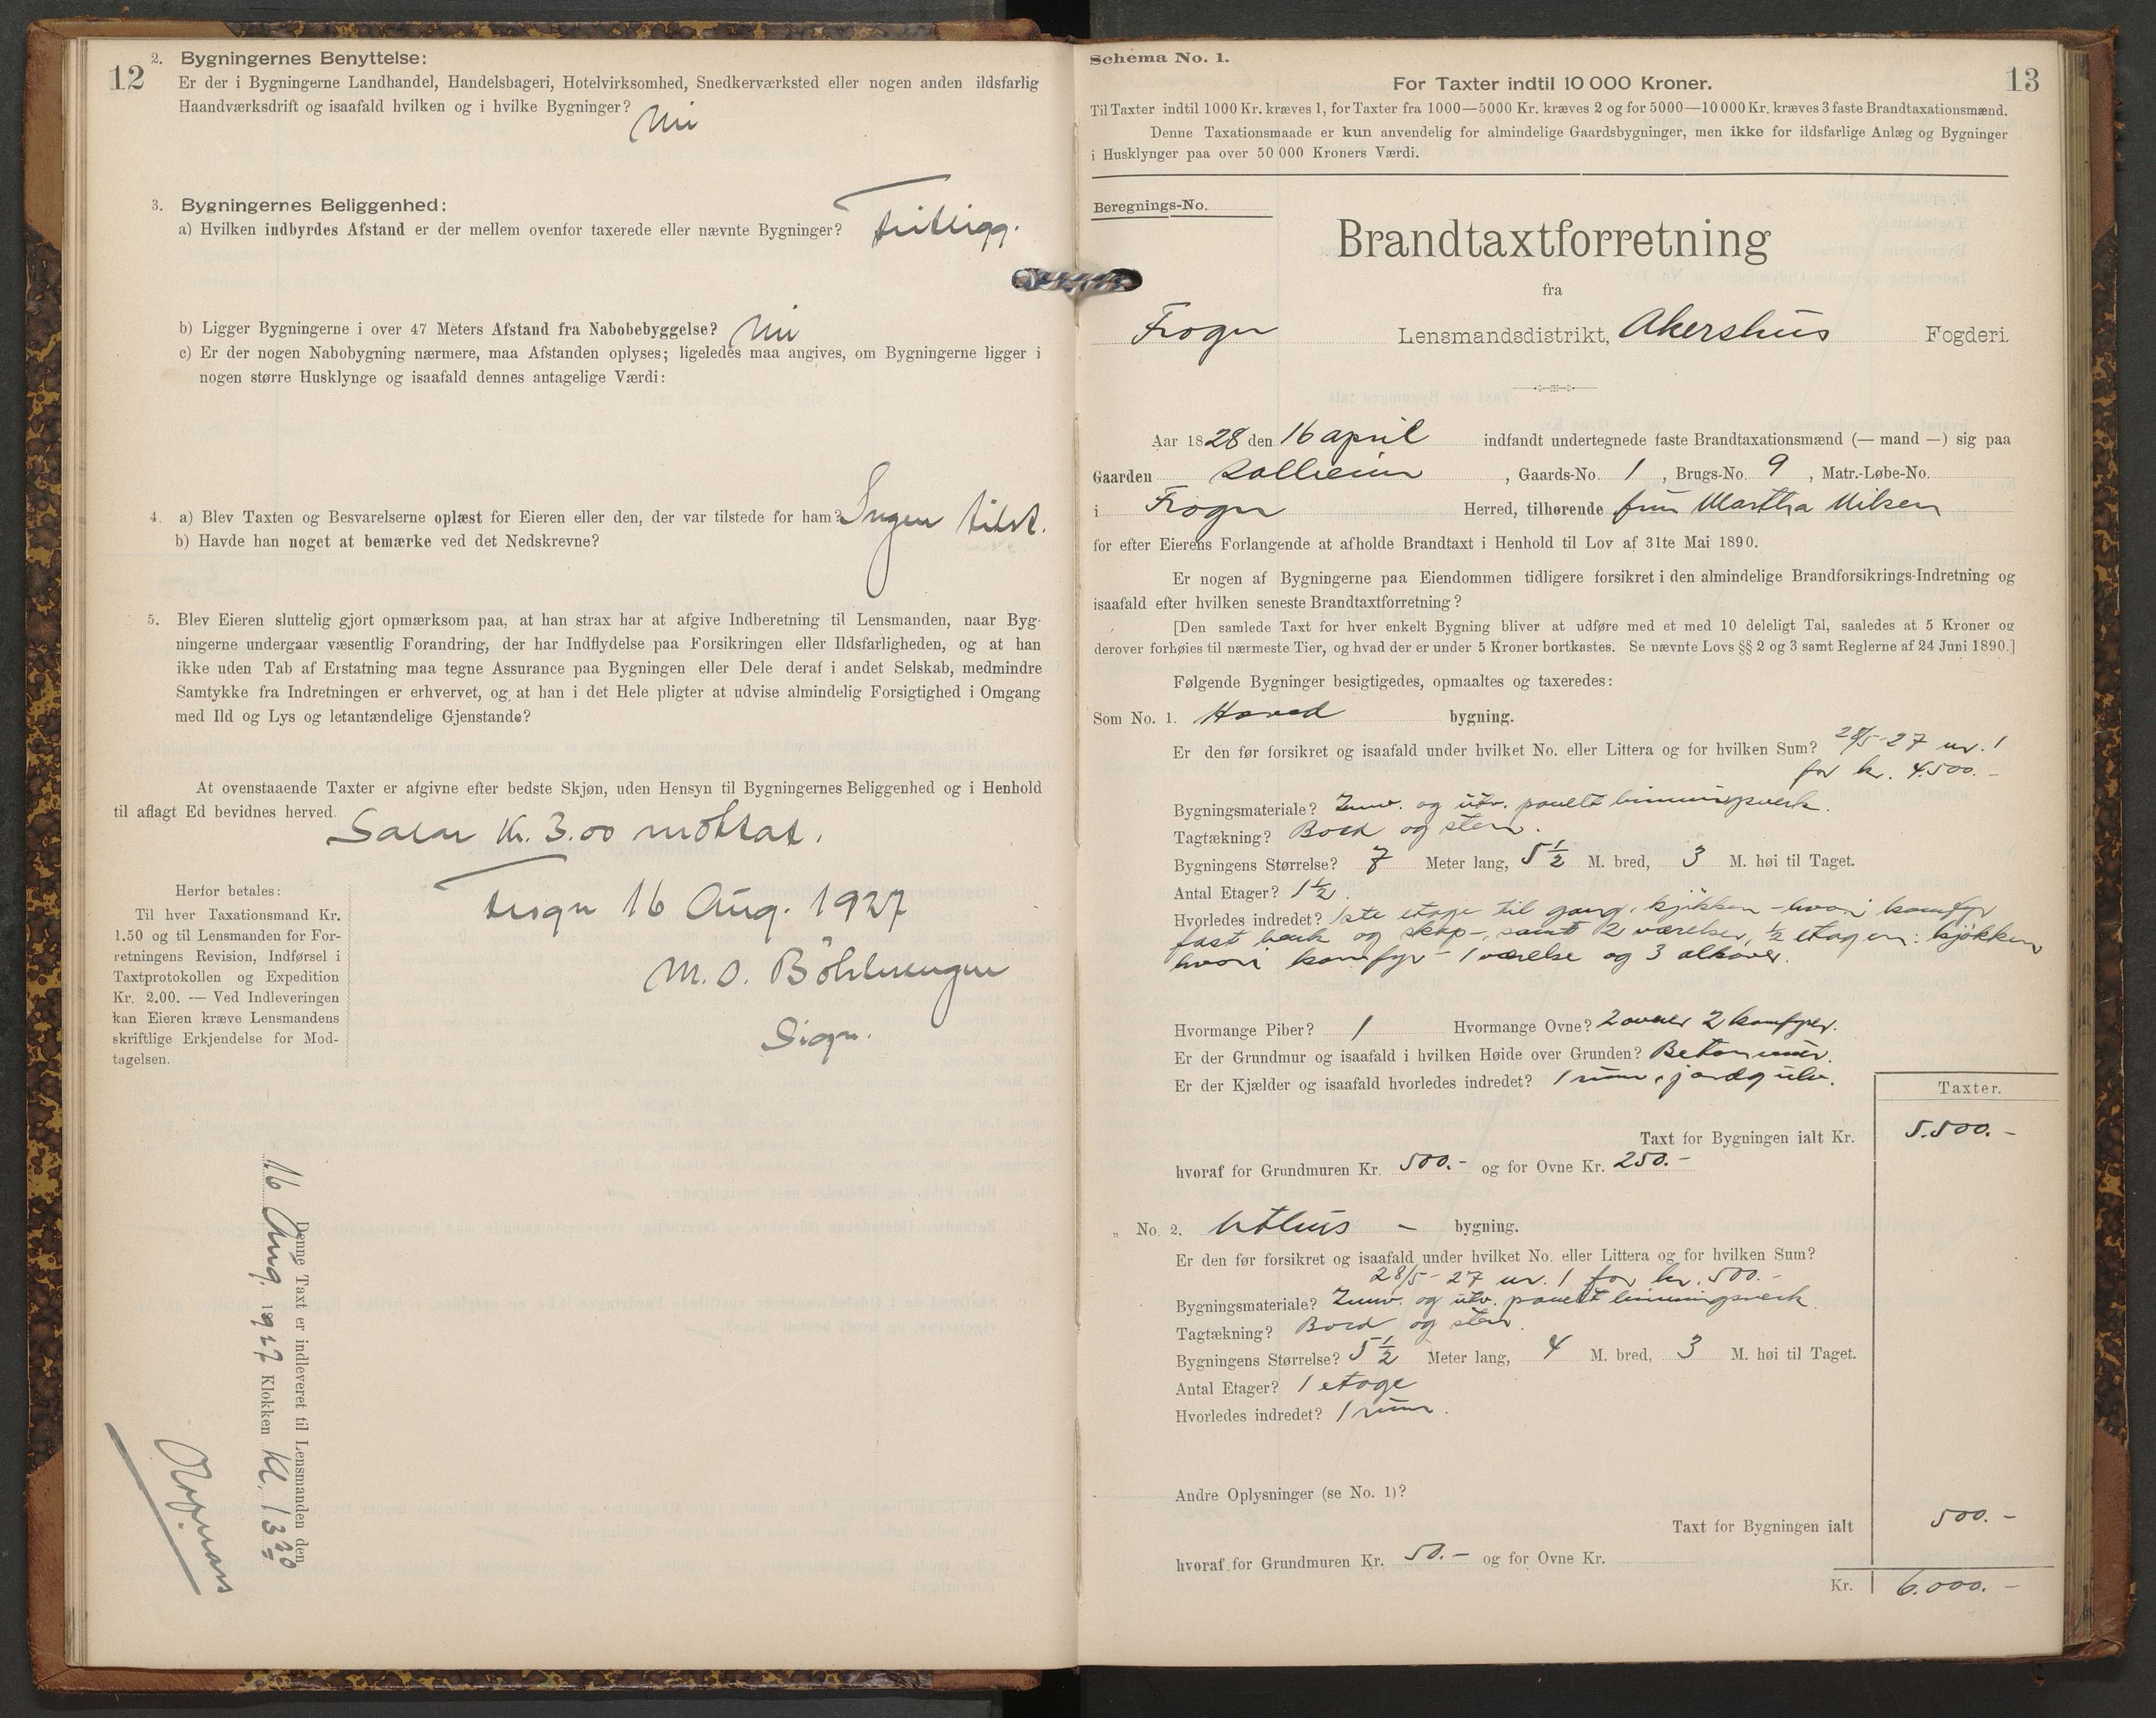 12
2. Bygningernes Benyttelse:
Er der i Bygningerne Landhandel, Handelsbageri, Hotelvirksomhed, Snedkerværksted eller nogen anden ildsfarlig
Haandværksdrift og isaafald hvilken og i hvilke Bygninger?
Nei
3. Bygningernes Beliggenhed:
a) Hvilken indbyrdes Afstand er der mellem ovenfor taxerede eller nævnte Bygninger? Fritligg.
b) Ligger Bygningerne i over 47 Meters Afstand fra Nabobebyggelse? Nei
c) Er der nogen Nabobygning nærmere, maa Afstanden oplyses; ligeledes maa angives, om Bygningerne ligger i
nogen større Husklynge og isaafald dennes antagelige Værdi:
4. a) Blev Taxten og Besvarelserne oplæst for Eieren eller den, der var tilstede for ham? Ingen tilst.
b) Havde han noget at bemærke ved det Nedskrevne?
5. Blev Eieren sluttelig gjort opmærksom paa, at han strax har at afgive Indberetning til Lensmanden, naar Byg-
ningerne undergaar væsentlig Forandring, der har Indflydelse paa Forsikringen eller Ildsfarligheden, og at han
ikke uden Tab af Erstatning maa tegne Assurance paa Bygningen eller Dele deraf i andet Selskab, medmindre
Samtykke fra Indretningen er erhvervet, og at han i det Hele pligter at udvise almindelig Forsigtighed i Omgang
med Ild og Lys og letantændelige Gjenstande?
At ovenstaaende Taxter er afgivne efter bedste Skjøn, uden Hensyn til Bygningernes Beliggenhed og i Henhold
til aflagt Ed bevidnes herved.
Salar Kr. 3.00 mottat.
Frogn 16 Aug. 1927
M. O.
Sign.
Herfor betales:
Til hver Taxationsmand Kr.
1.50 og til Lensmanden for For-
retningens Revision, Indførsel i
Taxtprotokollen og Expedition
Kr. 2.00. — Ved Indleveringen
kan Eieren kræve Lensmandens
skriftlige Erkjendelse for Mod-
tagelsen.
Denne Taxt er indleveret til Lensmanden den
16 Aug. 1927 Klokken Kl. 13 20
13
Schema No. 1.
For Taxter indtil 10 000 Kroner.
Til Taxter indtil 1000 Kr. kræves 1, for Taxter fra 1000—5000 Kr. kræves 2 og for 5000—10 000 Kr. kræves 3 faste Brandtaxationsmænd.
Denne Taxationsmaade er kun anvendelig for almindelige Gaardsbygninger, men ikke for ildsfarlige Anlæg og Bygninger
i Husklynger paa over 50 000 Kroners Værdi.
Beregnings-No.
Brandtaxtforretning
fra
Frogn Lensmandsdistrikt, Akershus Fogderi.
Aar 1828 den 16 april indfandt undertegnede faste Brandtaxationsmænd (— mand —) sig paa
Gaarden Solheim, Gaards-No. 1, Brugs-No. 9, Matr.-Løbe-No.
i Frogn Herred, tilhørende fru Martha Nilsen
for efter Eierens Forlangende at afholde Brandtaxt i Henhold til Lov af 31te Mai 1890.
Er nogen af Bygningerne paa Eiendommen tidligere forsikret i den almindelige Brandforsikrings-Indretning og
isaafald efter hvilken seneste Brandtaxtforretning?
[Den samlede Taxt for hver enkelt Bygning bliver at udføre med et med 10 deleligt Tal, saaledes at 5 Kroner og
derover forhøies til nærmeste Tier, og hvad der er under 5 Kroner bortkastes. Se nævnte Lovs §§ 2 og 3 samt Reglerne af 24 Juni 1890.]
Følgende Bygninger besigtigedes, opmaaltes og taxeredes:
Som No. 1. Hoved bygning.
Er den før forsikret og isaafald under hvilket No. eller Littera og for hvilken Sum? 28/5-27 nr. 1
for kr. 4.500.-
Bygningsmateriale? Innv. og utv. panelt binningsverk.
Tagtækning? Bord og sten.
Bygningens Størrelse? 7 Meter lang, 5 1/2 M. bred, 3 M. høi til Taget.
Antal Etager? 1 1/2.
Hvorledes indredet? 1ste etage til gang, kjøkken - hvori komfyr
fast benk og skap -, samt 2 værelser, 1/2 etagen: kjøkken
hvori komfyr - 1 værelse og 3 alkover.
Hvormange Piber? 1 Hvormange Ovne? 2 ovner 2 komfyrer.
Er der Grundmur og isaafald i hvilken Høide over Grunden? Betonmur.
Er der Kjælder og isaafald hvorledes indredet? 1 rum, jordgulv.
Taxter.
Taxt for Bygningen ialt Kr. 5.500.-
hvoraf for Grundmuren Kr. 500.- og for Ovne Kr. 250.-
„ No. 2. Uthus - bygning.
Er den før forsikret og isaafald under hvilket No. eller Littera og for hvilken Sum?
28/5-27 nr. 1 for kr. 500.-
Bygningsmateriale? Innv. og utv. panelt binningsverk.
Tagtækning? Bord og sten.
Bygningens Størrelse? 5 1/2 Meter lang, 4 M. bred, 3 M. høi til Taget.
Antal Etager? 1 etage
Hvorledes indredet? 1 rum.
Andre Oplysninger (se No. 1)?
Taxt for Bygningen ialt 500.-
hvoraf for Grundmuren Kr. 50.- og for Ovne Kr.
Kr. 6.000.-